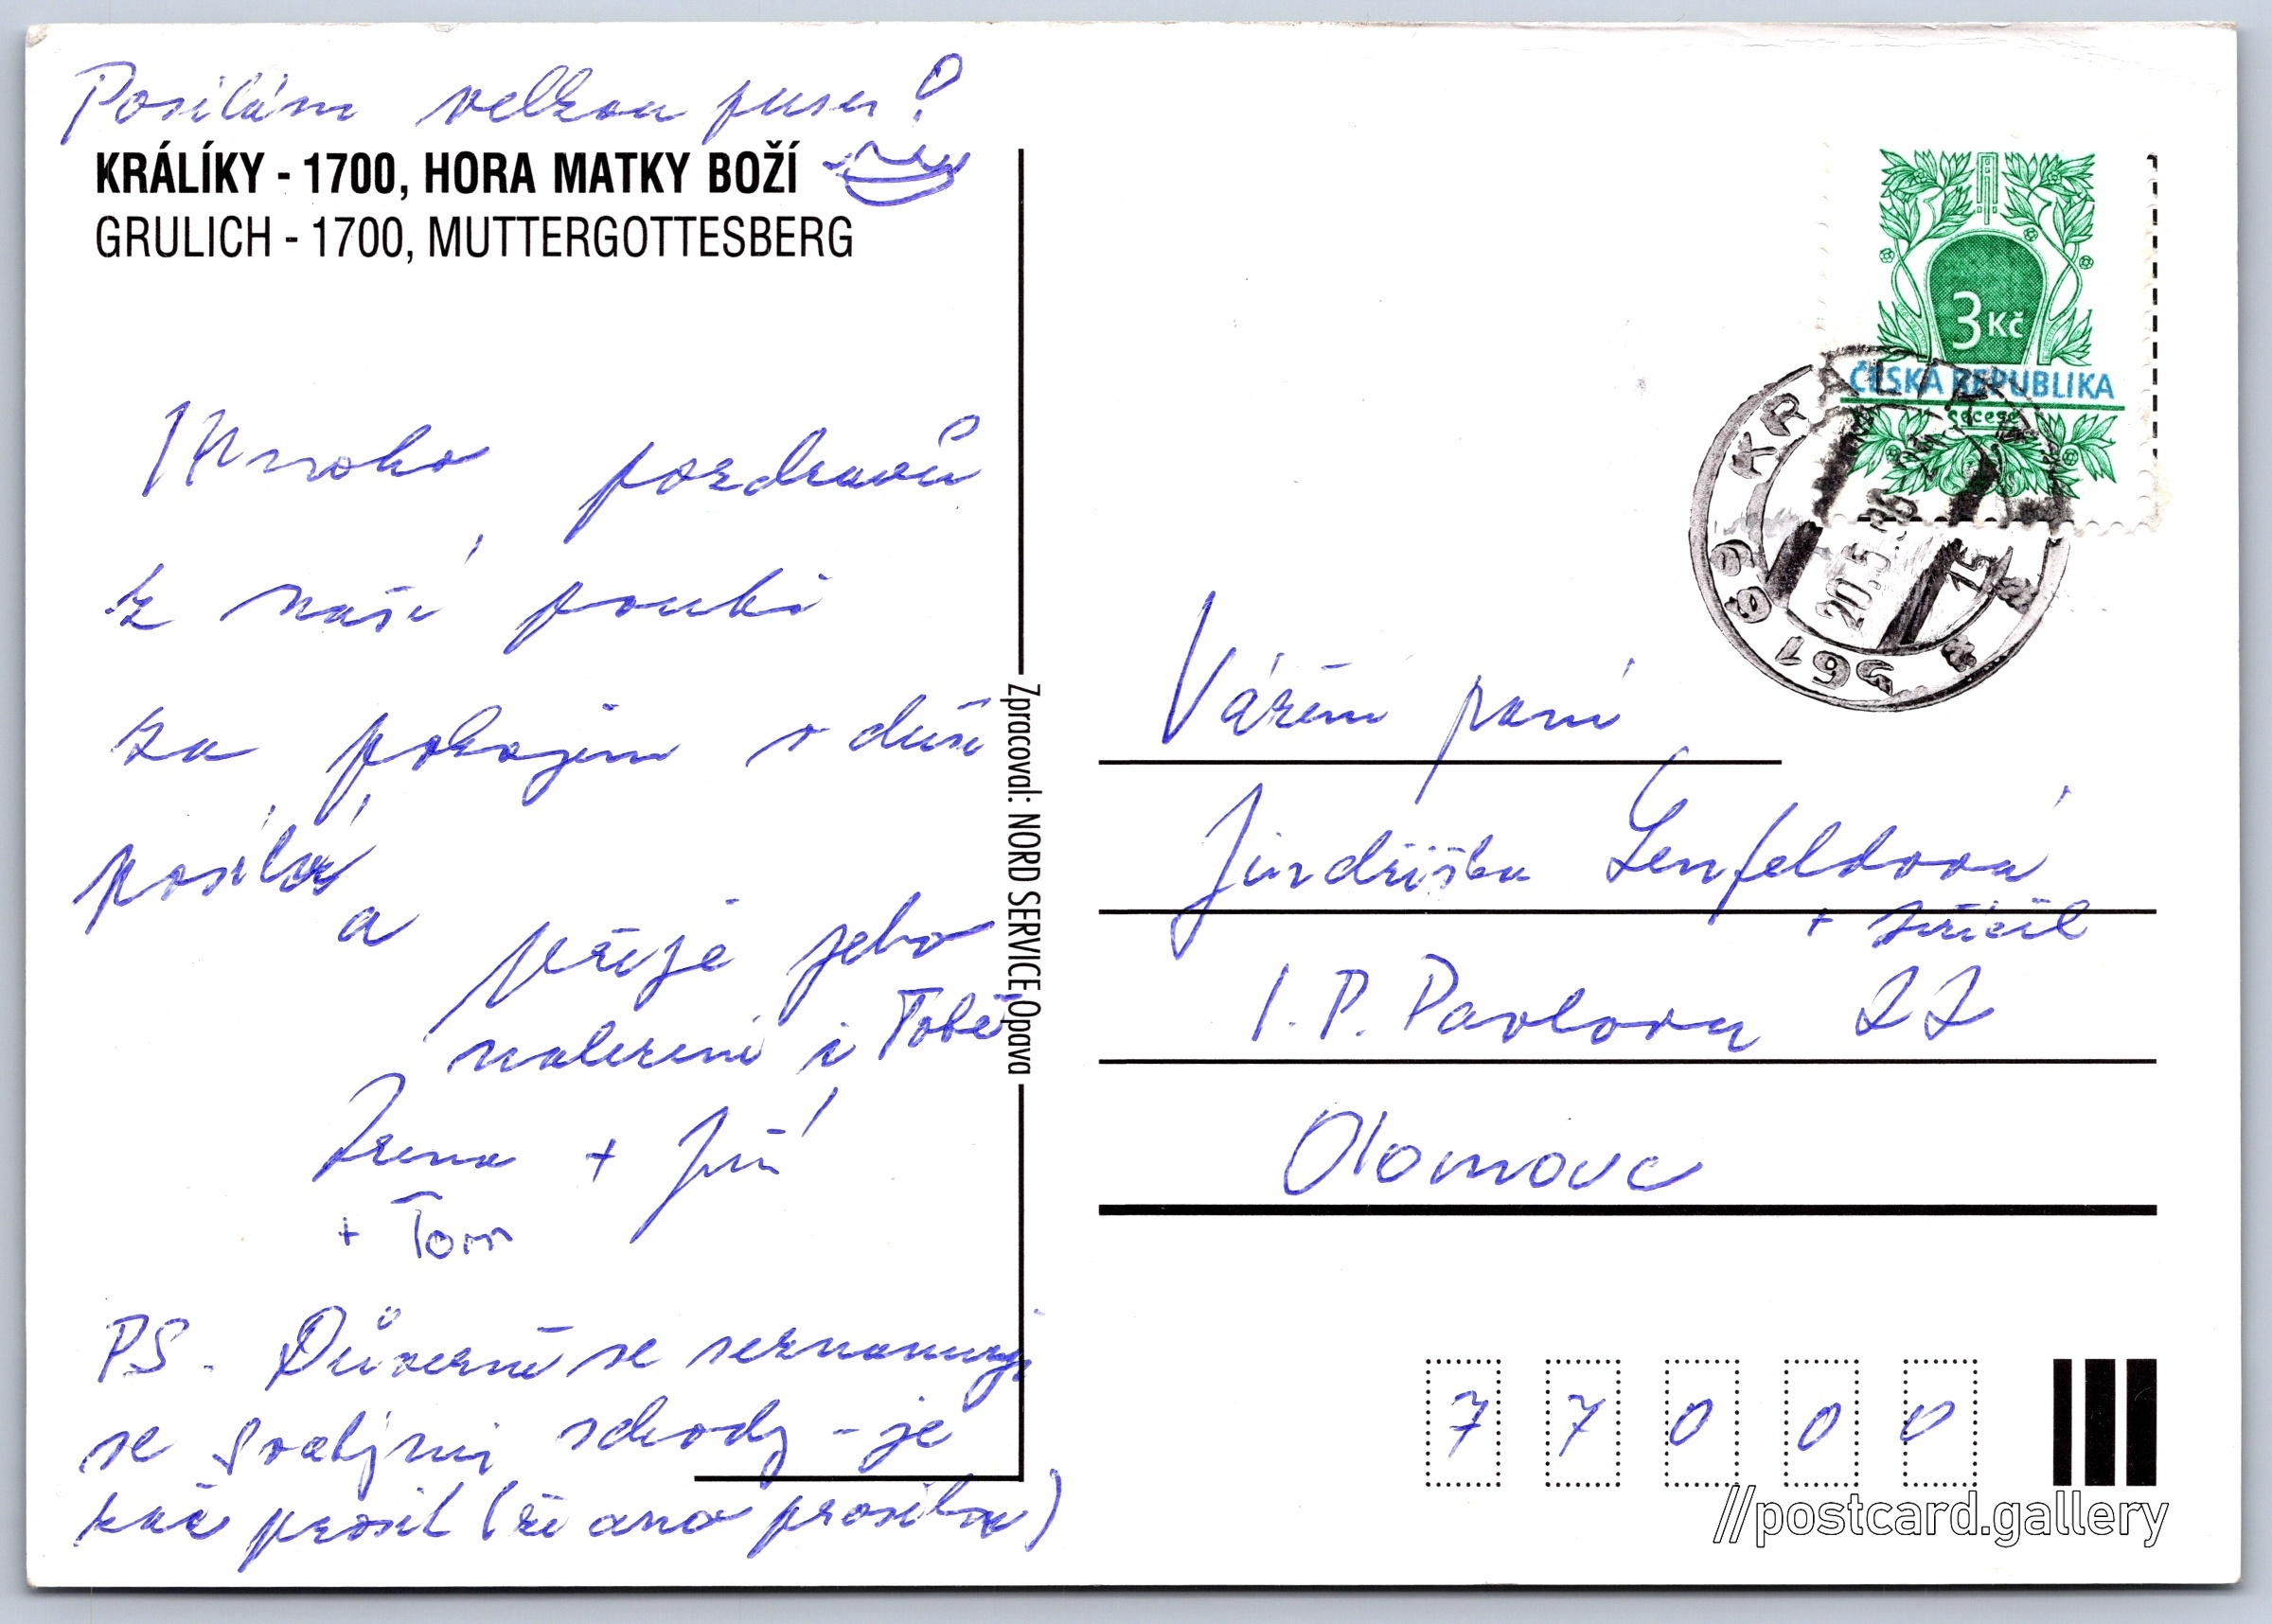 Posílám velkou pusu!
KRÁLÍKY - 1700, HORA MATKY BOŽÍ
GRULICH - 1700, MUTTERGOTTESBERG
Mnoho pozdravů
z naší pouti
za pokojem v duši
posílá
a přeje jeho
nalezení i Tobě
Irena + Jiří
+ Tom
PS. Důvěrně se seznamuji
se svatými schody - je
zač prosit (či ano prosila)
Zpracoval: NORD SERVICE Opava
3 Kč
ČESKÁ REPUBLIKA
secese
KRÁLÍKY
20.5.96 15
561 69
Vážení paní
Jindřiška Lenfeldová
+
I. P. Pavlova 22
Olomouc
7 7 0 0 0
//postcard.gallery